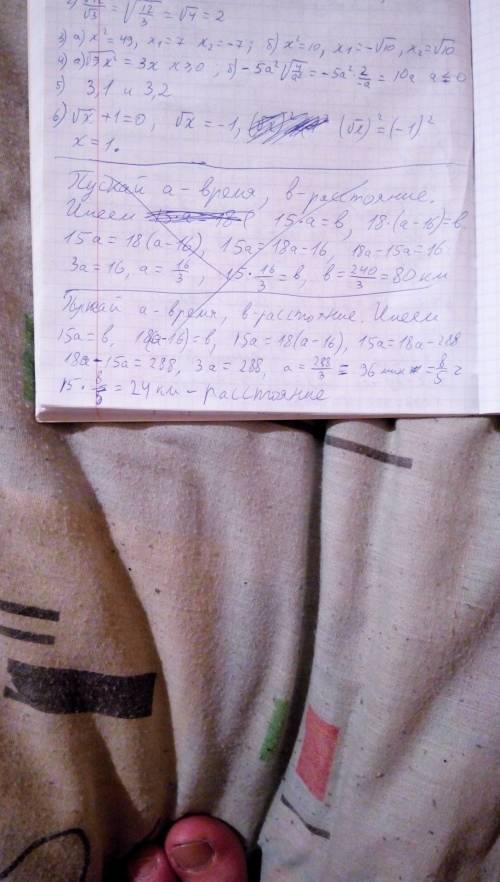 = √12/3 = √4 = 2
3) а) x² = 49, x₁ = 7 x₂ = -7; б) x² = 10, x₁ = -√10, x₂ = √10
4) а) √9x² = 3x x≥0; б) -5a²√4/a² = -5a²·2/-a = 10a a ≤ 0
5) 3,1 и 3,2
6) √x + 1 = 0, √x = -1, (√x)² = (-1)²
x = 1.
Пускай а - время, в - растояние.
Имеем 15·a = в, 18·(a-16) = в.
15a = 18(a-16), 15a = 18a-16, 18a-15a = 16
3a = 16, a = 16/3, 15·16/3 = в, в = 240/3 = 80 км
Пускай а - время, в - растояние. Имеем
15a = в, 18(a-16) = в, 15a = 18(a-16), 15a = 18a - 288
18a - 15a = 288, 3a = 288, a = 288/3 = 96 мин = 8/5 г
15·8/5 = 24 км - расстояние